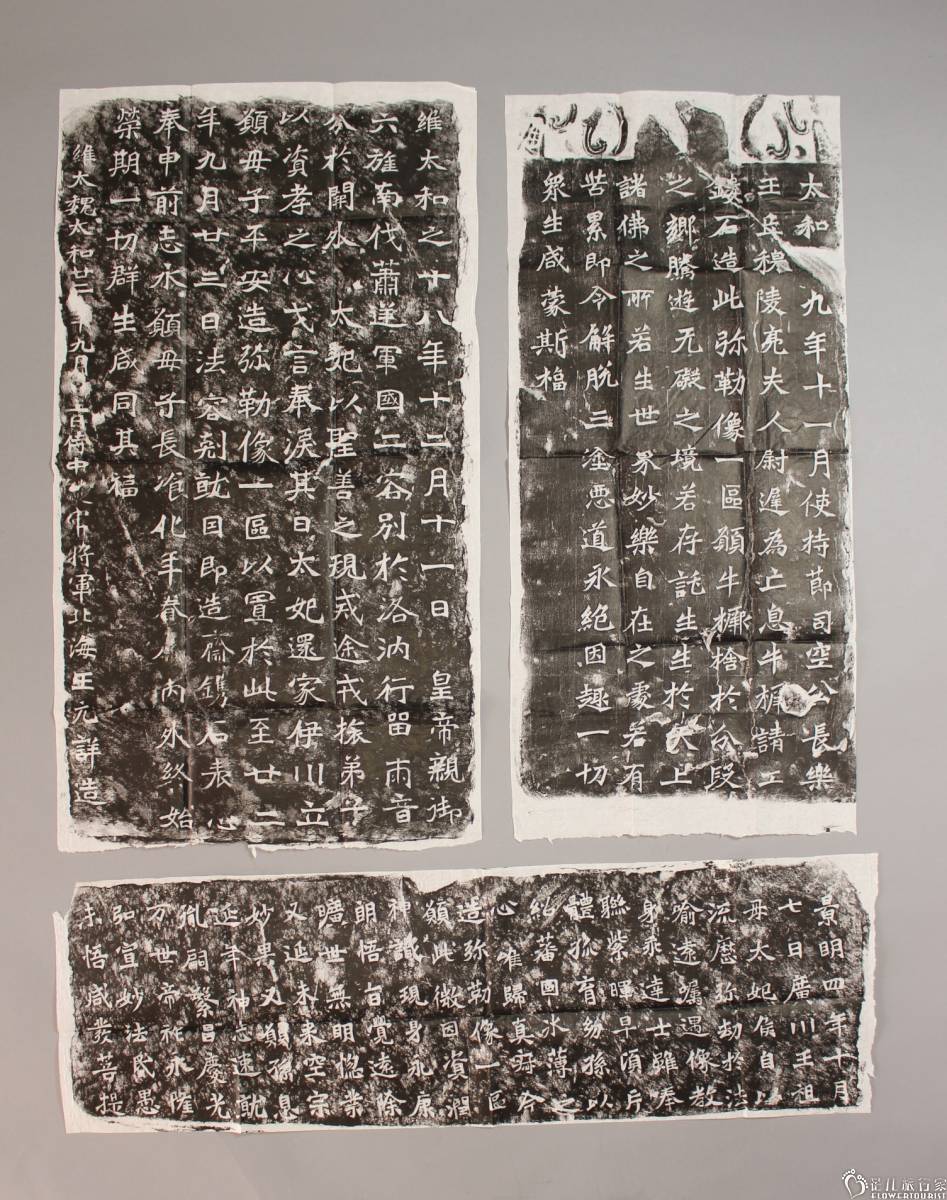 太和 九年十一月使持節司空公長樂
王丘穆陵亮夫人尉遲為亡息牛橛請工
鏤石造此弥勒像一區願牛橛捨於分段
之鄉騰遊无礙之境若存託生生於天上
諸佛之所若生世界妙樂自在之處若有
苦累即令解脱三塗惡道永絕因趣一切
衆生咸蒙斯福
維太和之十八年十二月十一日皇帝親御
六旌南伐蕭逆軍國二容別於洛汭行留兩音
分於闕外太妃以聖善之規戒途戎旅弟子
以資孝之心戈言奉淚其日太妃還家伊川立
願母子平安造弥勒像一區以置於此至廿二
年九月廿三日法容剋就因即造齋鐫石表心
奉申前志永願母子長飡化年眷 內外終始
榮期一切群生咸同其福
維大魏太和廿二年九月 三日侍中 軍將軍北海王元詳造
景明四年十月
七日廣川王祖
母太妃侯自以
流歷弥劫於法
喻遠囑遇像教
身乘達士雖奉
聯紫暉早頃片
體孤育紛孫以
紀蕃國冰薄之
心唯歸真寂今
造弥勒像一區
願此微因資潤
神識現身永康
朗悟旨覺遠除
曠世無明惚業
又延未來空宗
妙果又願孫息
延年神志速就
胤嗣繁昌慶光
万世帝祚永隆
弘宣妙法昏愚
未悟咸發菩提
花儿旅行家
FLOWERTOURIST